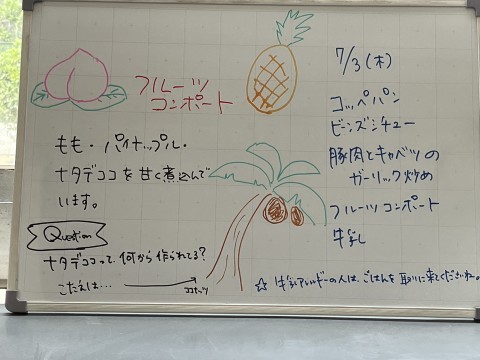 フルーツ
コンポート
もも・パイナップル・
ナタデココを甘く煮込んで
います。
Question
ナタデココって、何から作られてる?
こたえは…
ココナッツ
7/3(木)
コッペパン
ビーンズシチュー
豚肉とキャベツの
ガーリック炒め
フルーツコンポート
牛乳
☆牛乳アレルギーの人は、ごはんを取りに来てくださいね。